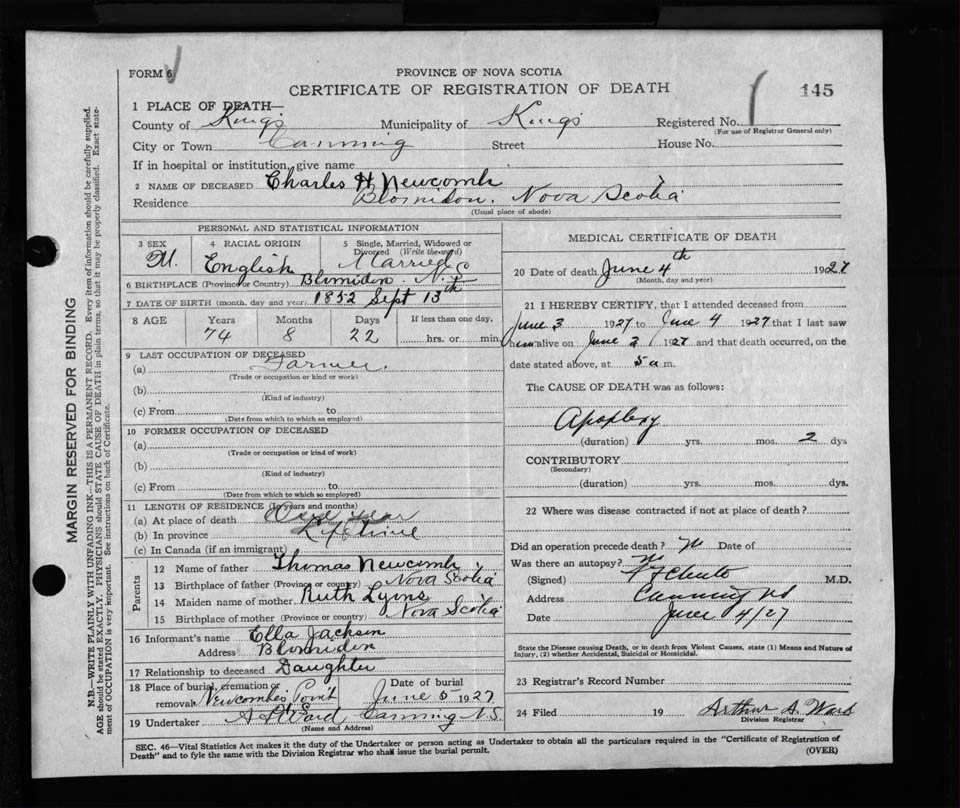 FORM 6
PROVINCE OF NOVA SCOTIA
CERTIFICATE OF REGISTRATION OF DEATH
145
1 PLACE OF DEATH—
County of Kings Municipality of Kings Registered No.
(For use of Registrar General only)
City or Town Canning Street House No.
If in hospital or institution, give name
2 NAME OF DECEASED Charles H. Newcomb
Residence Blomidon, Nova Scotia
(Usual place of abode)
PERSONAL AND STATISTICAL INFORMATION
3 SEX M.
4 RACIAL ORIGIN English
5 Single, Married, Widowed or Divorced (Write the word) Married
6 BIRTHPLACE (Province or Country) Blomidon N.S
7 DATE OF BIRTH (month, day and year) 1852 Sept 13th
8 AGE Years Months Days If less than one day,
74 8 22 hrs. or min.
9 LAST OCCUPATION OF DECEASED
(a) Farmer.
(Trade or occupation or kind or work)
(b)
(Kind of industry)
(c) From to
(Date from which to which so employed)
10 FORMER OCCUPATION OF DECEASED
(a)
(Trade or occupation or kind of work)
(b)
(Kind of industry)
(c) From to
(Date from which to which so employed)
11 LENGTH OF RESIDENCE (In years and months)
(a) At place of death One year
(b) In province Lifetime
(c) In Canada (if an immigrant)
Parents
12 Name of father Thomas Newcomb
13 Birthplace of father (Province or country) Nova Scotia
14 Maiden name of mother Ruth Lyons
15 Birthplace of mother (Province or country) Nova Scotia
16 Informant's name Ella Jackson
Address Blomidon
17 Relationship to deceased Daughter
18 Place of burial, cremation or removal Newcombe Point N.S Date of burial June 5 1927
19 Undertaker A A Ward Canning N.S.
(Name and Address)
MEDICAL CERTIFICATE OF DEATH
20 Date of death June 4th 1927
(Month, day and year)
21 I HEREBY CERTIFY, that I attended deceased from
June 3 1927 to June 4 1927 that I last saw
him alive on June 3 1927 and that death occurred, on the
date stated above, at 5 a m.
The CAUSE OF DEATH was as follows:
Apoplexy
(duration) yrs. mos. 2 dys
CONTRIBUTORY
(Secondary)
(duration) yrs. mos. dys.
22 Where was disease contracted if not at place of death?
Did an operation precede death? No Date of
Was there an autopsy? No
(Signed) M.D.
Address Canning NS
Date June 4/27
State the Disease causing Death, or in death from Violent Causes, state (1) Means and Nature of
Injury, (2) whether Accidental, Suicidal or Homicidal.
23 Registrar's Record Number
24 Filed 19 Arthur A. Ward
Division Registrar
SEC. 46—Vital Statistics Act makes it the duty of the Undertaker or person acting as Undertaker to obtain all the particulars required in the "Certificate of Registration of
Death" and to fyle the same with the Division Registrar who shall issue the burial permit. (OVER)
MARGIN RESERVED FOR BINDING
N.B.—WRITE PLAINLY WITH UNFADING INK—THIS IS A PERMANENT RECORD. Every item of information should be carefully supplied.
AGE should be stated EXACTLY. PHYSICIANS should STATE CAUSE OF DEATH in plain terms, so that it may be properly classified. Exact state-
ment of OCCUPATION is very important. See instructions on back of Certificate.